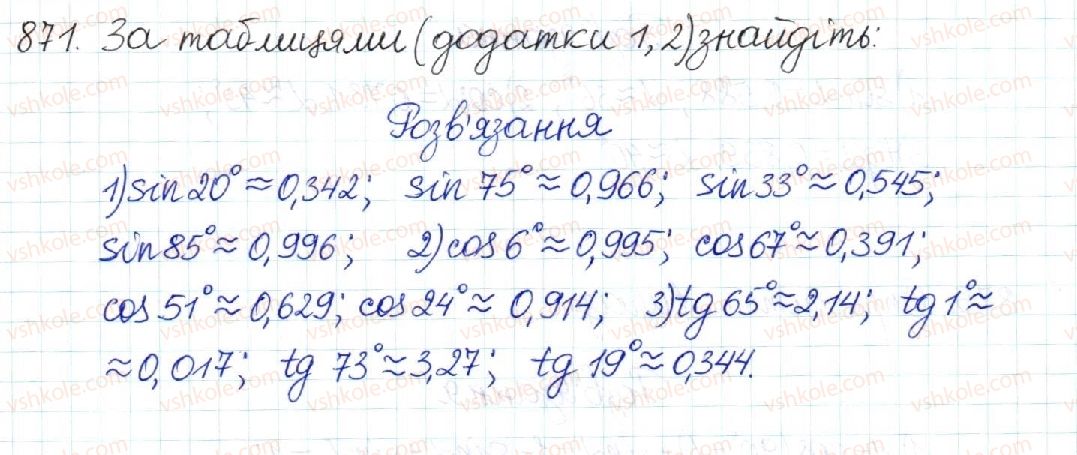 871. За таблицями (додатки 1, 2) знайдіть:
Розв'язання
1) sin 20° ≈ 0,342; sin 75° ≈ 0,966; sin 33° ≈ 0,545;
sin 85° ≈ 0,996; 2) cos 6° ≈ 0,995; cos 67° ≈ 0,391;
cos 51° ≈ 0,629; cos 24° ≈ 0,914; 3) tg 65° ≈ 2,14; tg 1° ≈
≈ 0,017; tg 73° ≈ 3,27; tg 19° ≈ 0,344.
vshkole.com